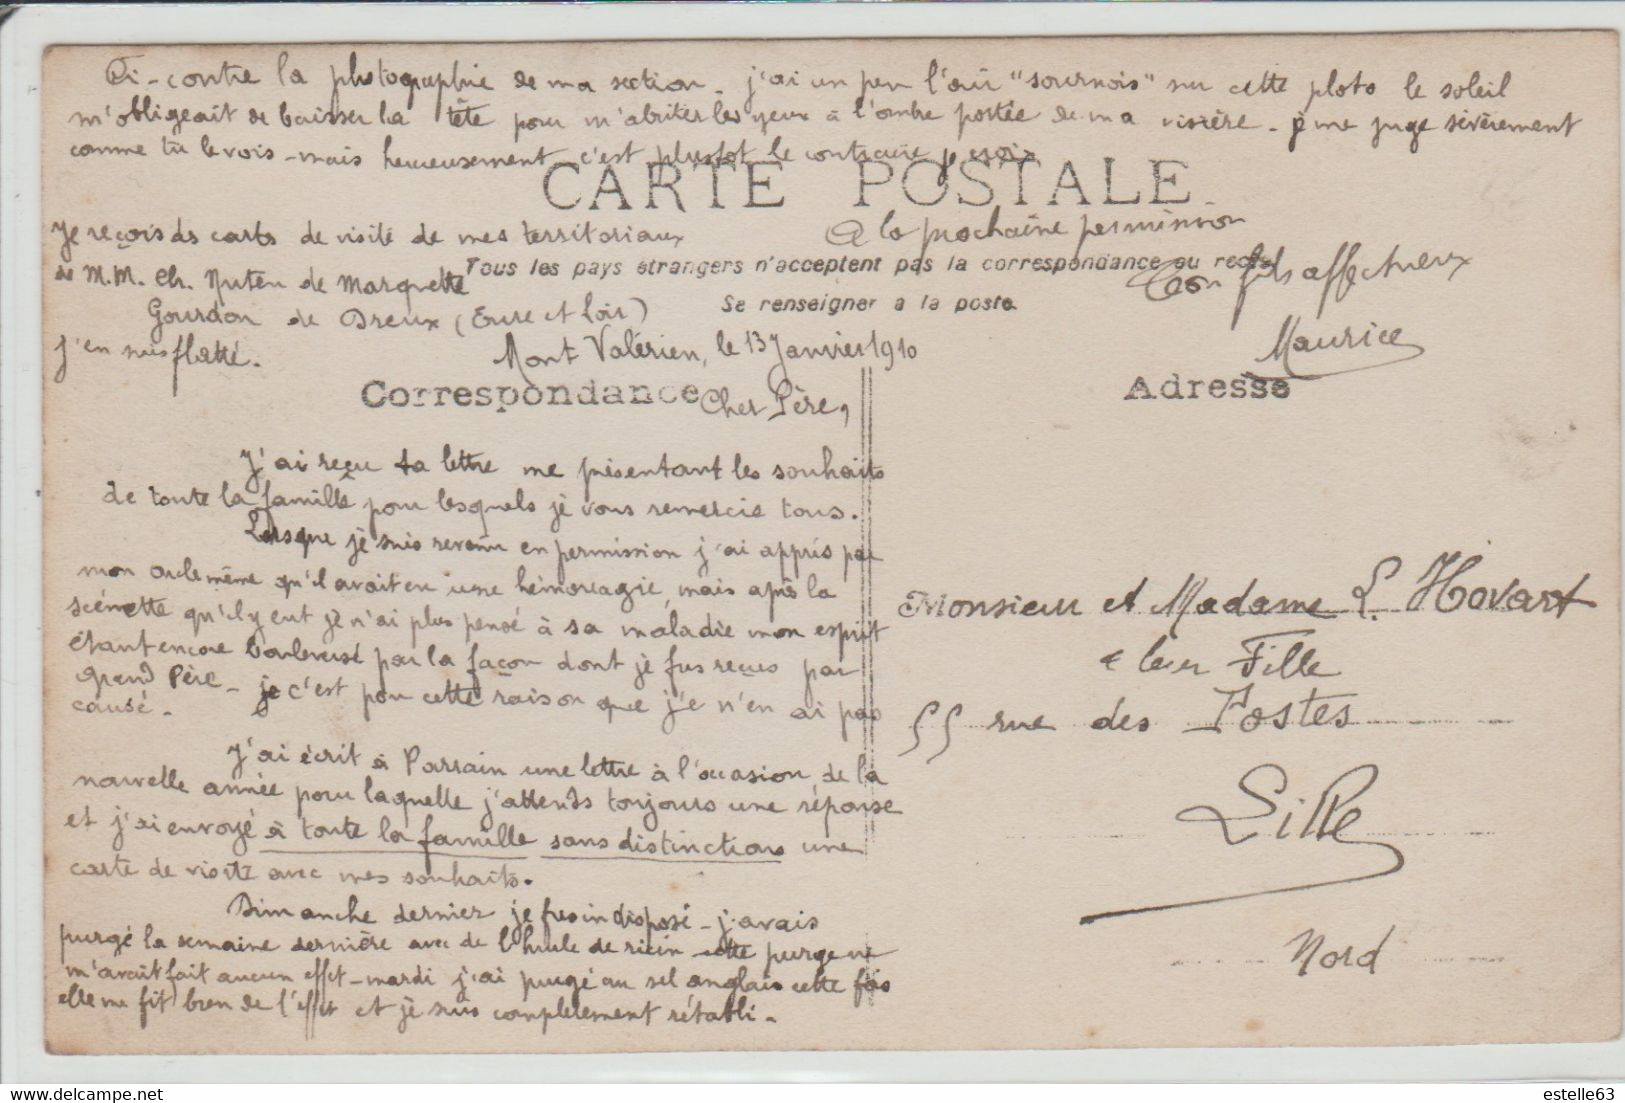 Ci-contre la photographie de ma section - j'ai un peu l'air "sournois" sur cette photo le soleil
m'obligeait de baisser la tête pour m'abriter les yeux à l'ombre portée de ma visière - je me juge sévèrement
comme tu le vois - mais heureusement c'est plustot le contraire je crois
CARTE POSTALE
Je reçois des carts de visite de mes territoriaux
de M.M. Ch. Nuten de Marquette
Gourdon de Dreux (Eure et Loir)
j'en suis flatté.
A la prochaine permission
Ton fils affectueux
Maurice
Tous les pays étrangers n'acceptent pas la correspondance au recto
Se renseigner a la poste
Mont Valérien, le 13 Janvier 1910
Correspondance
Cher Père,
J'ai reçu ta lettre me présentant les souhaits
de toute la famille pour lesquels je vous remercie tous.
Lorsque je suis revenu en permission j'ai appris par
mon oncle même qu'il avait eu une hémoragie, mais après la
scénette qu'il y eut je n'ai plus pensé à sa maladie mon esprit
étant encore bouleversé par la façon dont je fus reçus par
Grand Père - je c'est pour cette raison que j'e n'en ai pas
causé.
J'ai écrit à Parrain une lettre à l'occasion de la
nouvelle année pour laquelle j'attends toujours une réponse
et j'ai envoyé à toute la famille sans distinctions une
carte de visite avec mes souhaits.
Dimanche dernier je fus indisposé - j'avais
purgé la semaine dernière avec de l'huile de ricin cette purge ne
m'avait fait aucun effet - mardi j'ai purgé au sel anglais cette fois
elle me fit bien de l'effet et je suis complètement rétabli -
Adresse
Monsieur et Madame L. Hovart
& leur Fille
55 rue des Postes
Lille
Nord
estelle63